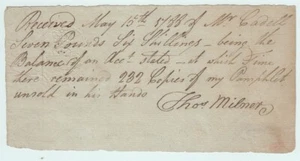 Received May 15th 1786 of Mr Cadell
Seven Pounds Six Shillings – being the
Balance of an Acct. stated – at which Time
there remained 232 Copies of my Pamphlet
unsold in his Hands
Thos Milner